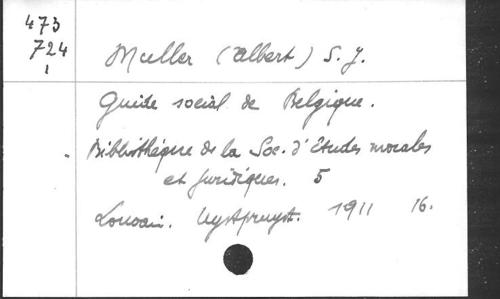 473
724
1
Muller (Albert) S. J.
Guide social de Belgique.
Bibliothèque de la Soc. d'études morales
et juridiques. 5
Louvain. Uystpruyst. 1911 16.